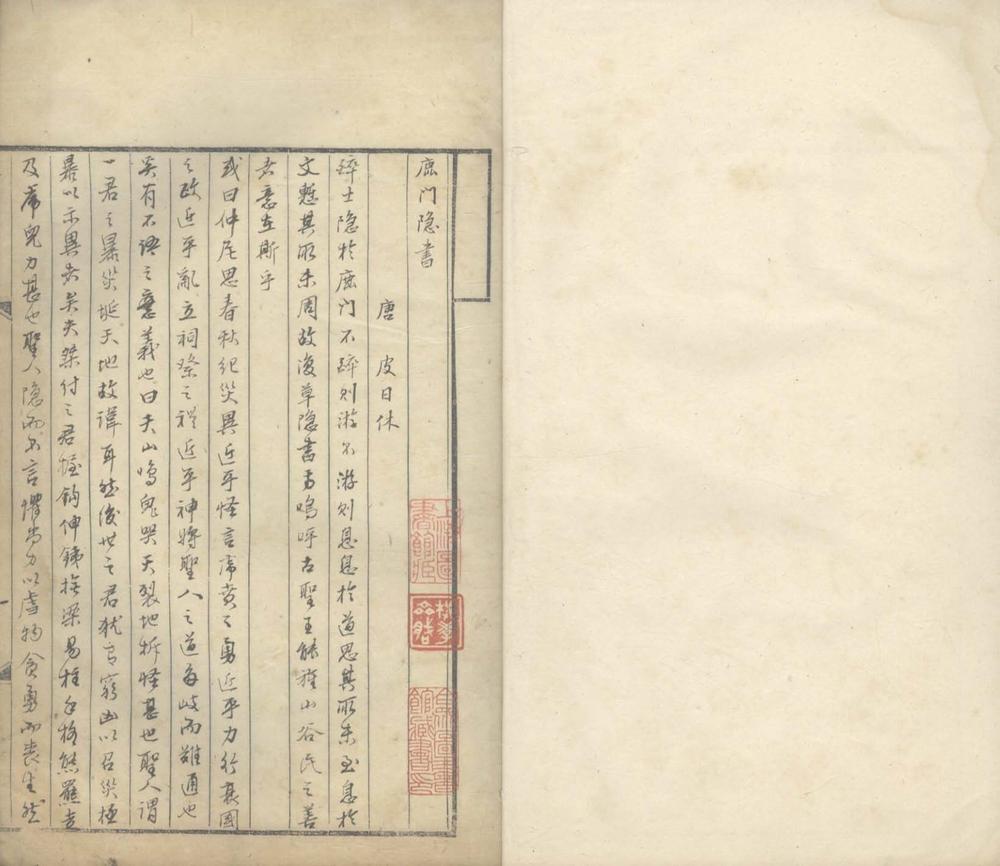 鹿门隐書
唐 皮日休
醉士隐於鹿门不醉则游不游则息息於道思其所未至息於
文慙其所未周故復草隐書焉嗚呼古聖王能旌山谷民之善
者意在斯乎
或曰仲尼思春秋纪災異近乎怪言虎賁之勇近乎力行衰國
之政近乎亂立祠祭之禮近乎神將聖人之道多岐而難通也
奚有不語之應義也曰夫山鳴鬼哭天裂地拆怪甚也聖人謂
一君之暴災埏天地故諱耳然後世之君犹有窮凶以召災極
暴以示異者矣夫桀紂之君握鈎伸鐵撫梁易柱手格熊羆走
及虎兕力甚也聖人隐而不言懼尚力以虐物貪勇而喪生然